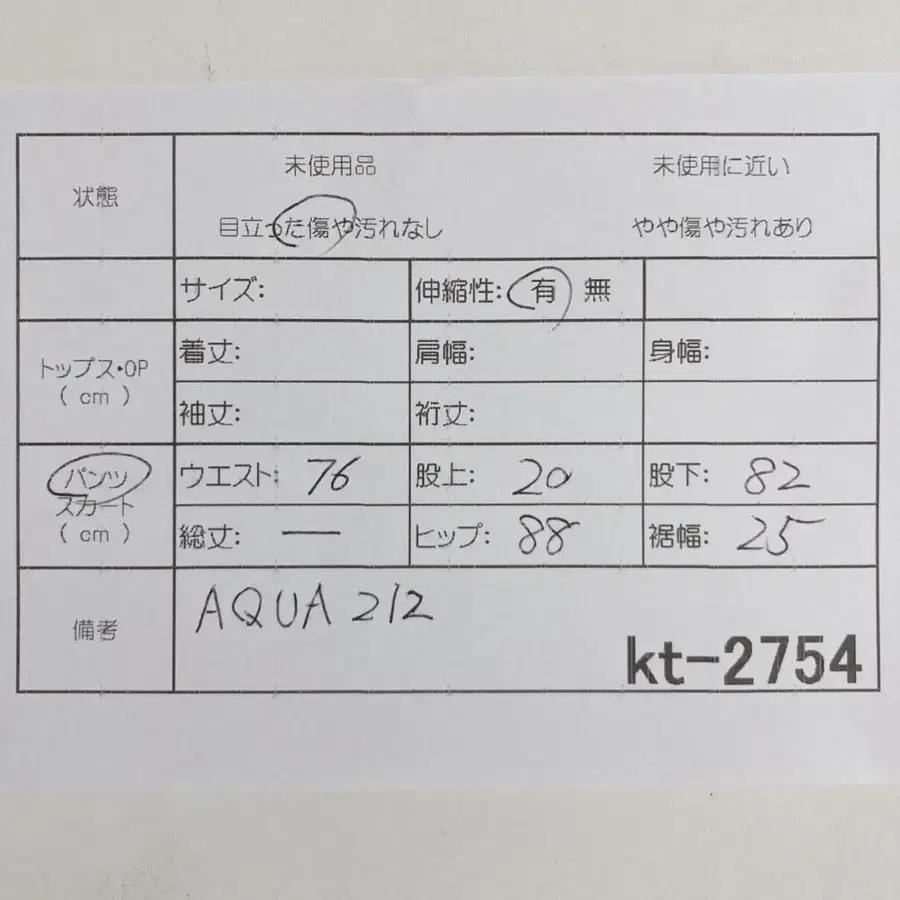 状態
未使用品 未使用に近い
目立った傷や汚れなし やや傷や汚れあり
サイズ: 伸縮性: 有 無
トップス・OP
( cm )
着丈: 肩幅: 身幅:
袖丈: 裄丈:
パンツ
スカート
( cm )
ウエスト: 76 股上: 20 股下: 82
総丈: — ヒップ: 88 裾幅: 25
備考
AQUA 212
kt-2754